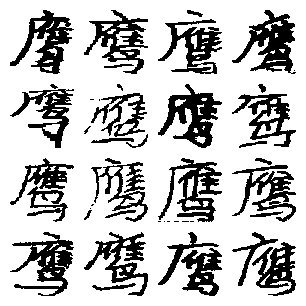 鹰鹰鹰鹰
鹰鹰鹰鹰
鹰鹰鹰鹰
鹰鹰鹰鹰